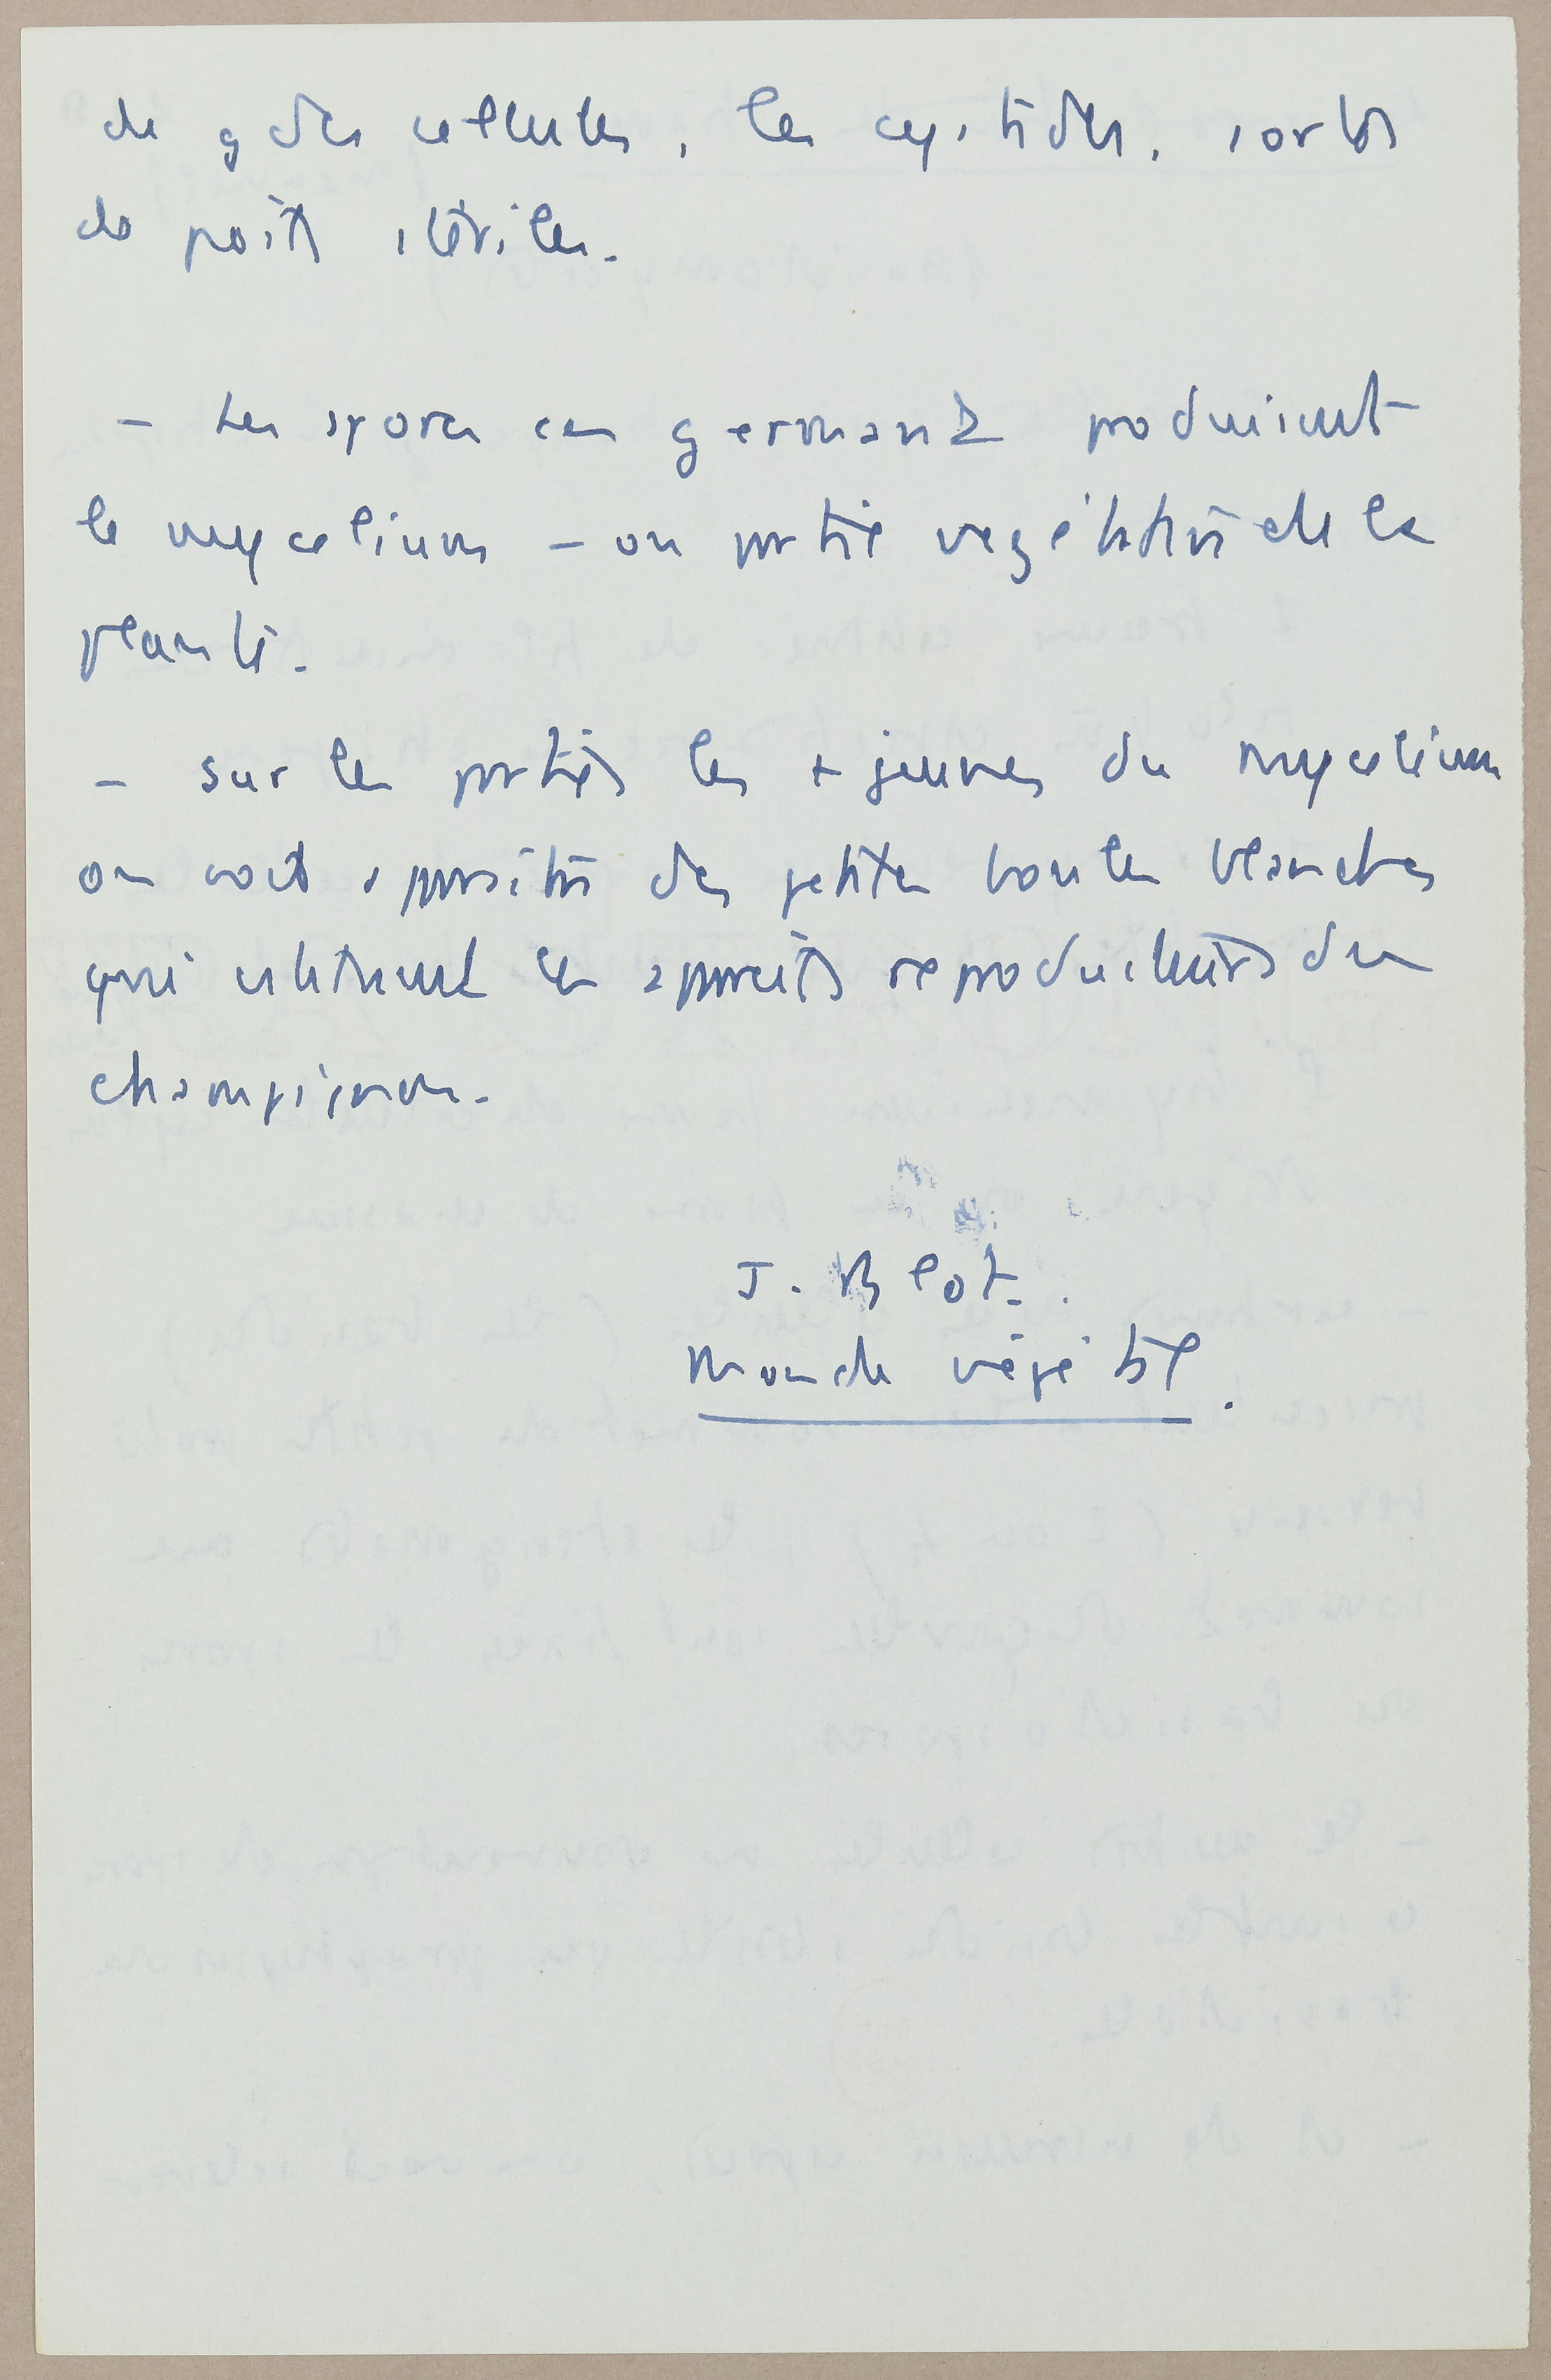 de gdes cellules, les cystides, sortes
de poils stériles.
- Les spores en germant produisent
le mycelium - ou partie végétative de la
plante.
- sur les parties les + jeunes du mycelium
on voit apparaître des petites boules blanches
qui constituent les appareils reproducteurs du
champignon.
J. Blot.
Monde végétal.